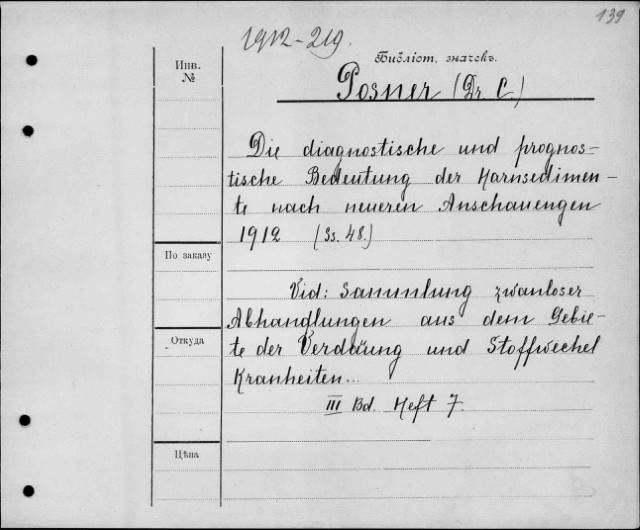 139
1912-219.
Инв.
№
Библіот. значекъ.
Posner (Dr. C.)
Die diagnostische und prognos-
tische Bedeutung der Harnsedimen-
te nach neueren Anschauengen
1912 (Ss. 48.)
По заказу
Vid: Sammlung zwanloser
Abhandlungen aus dem Gebie-
Откуда
te der Verdaüung und Stoffwechel
Kranheiten...
III Bd. Heft 7.
Цѣна